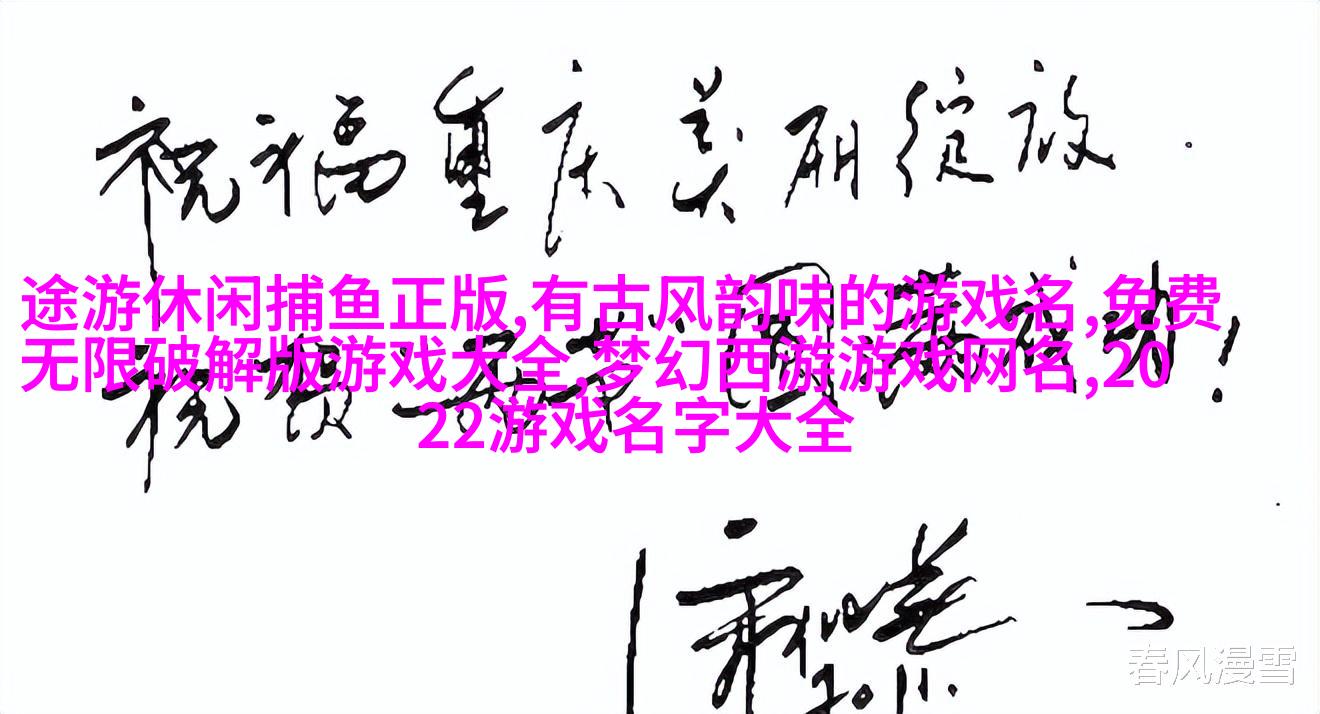 祝福重庆美丽绽放.
途游休闲捕鱼正版,有古风韵味的游戏名,免费
无限破解版游戏大全,梦幻西游游戏网名,20
22游戏名字大全
2011.
春风漫雪